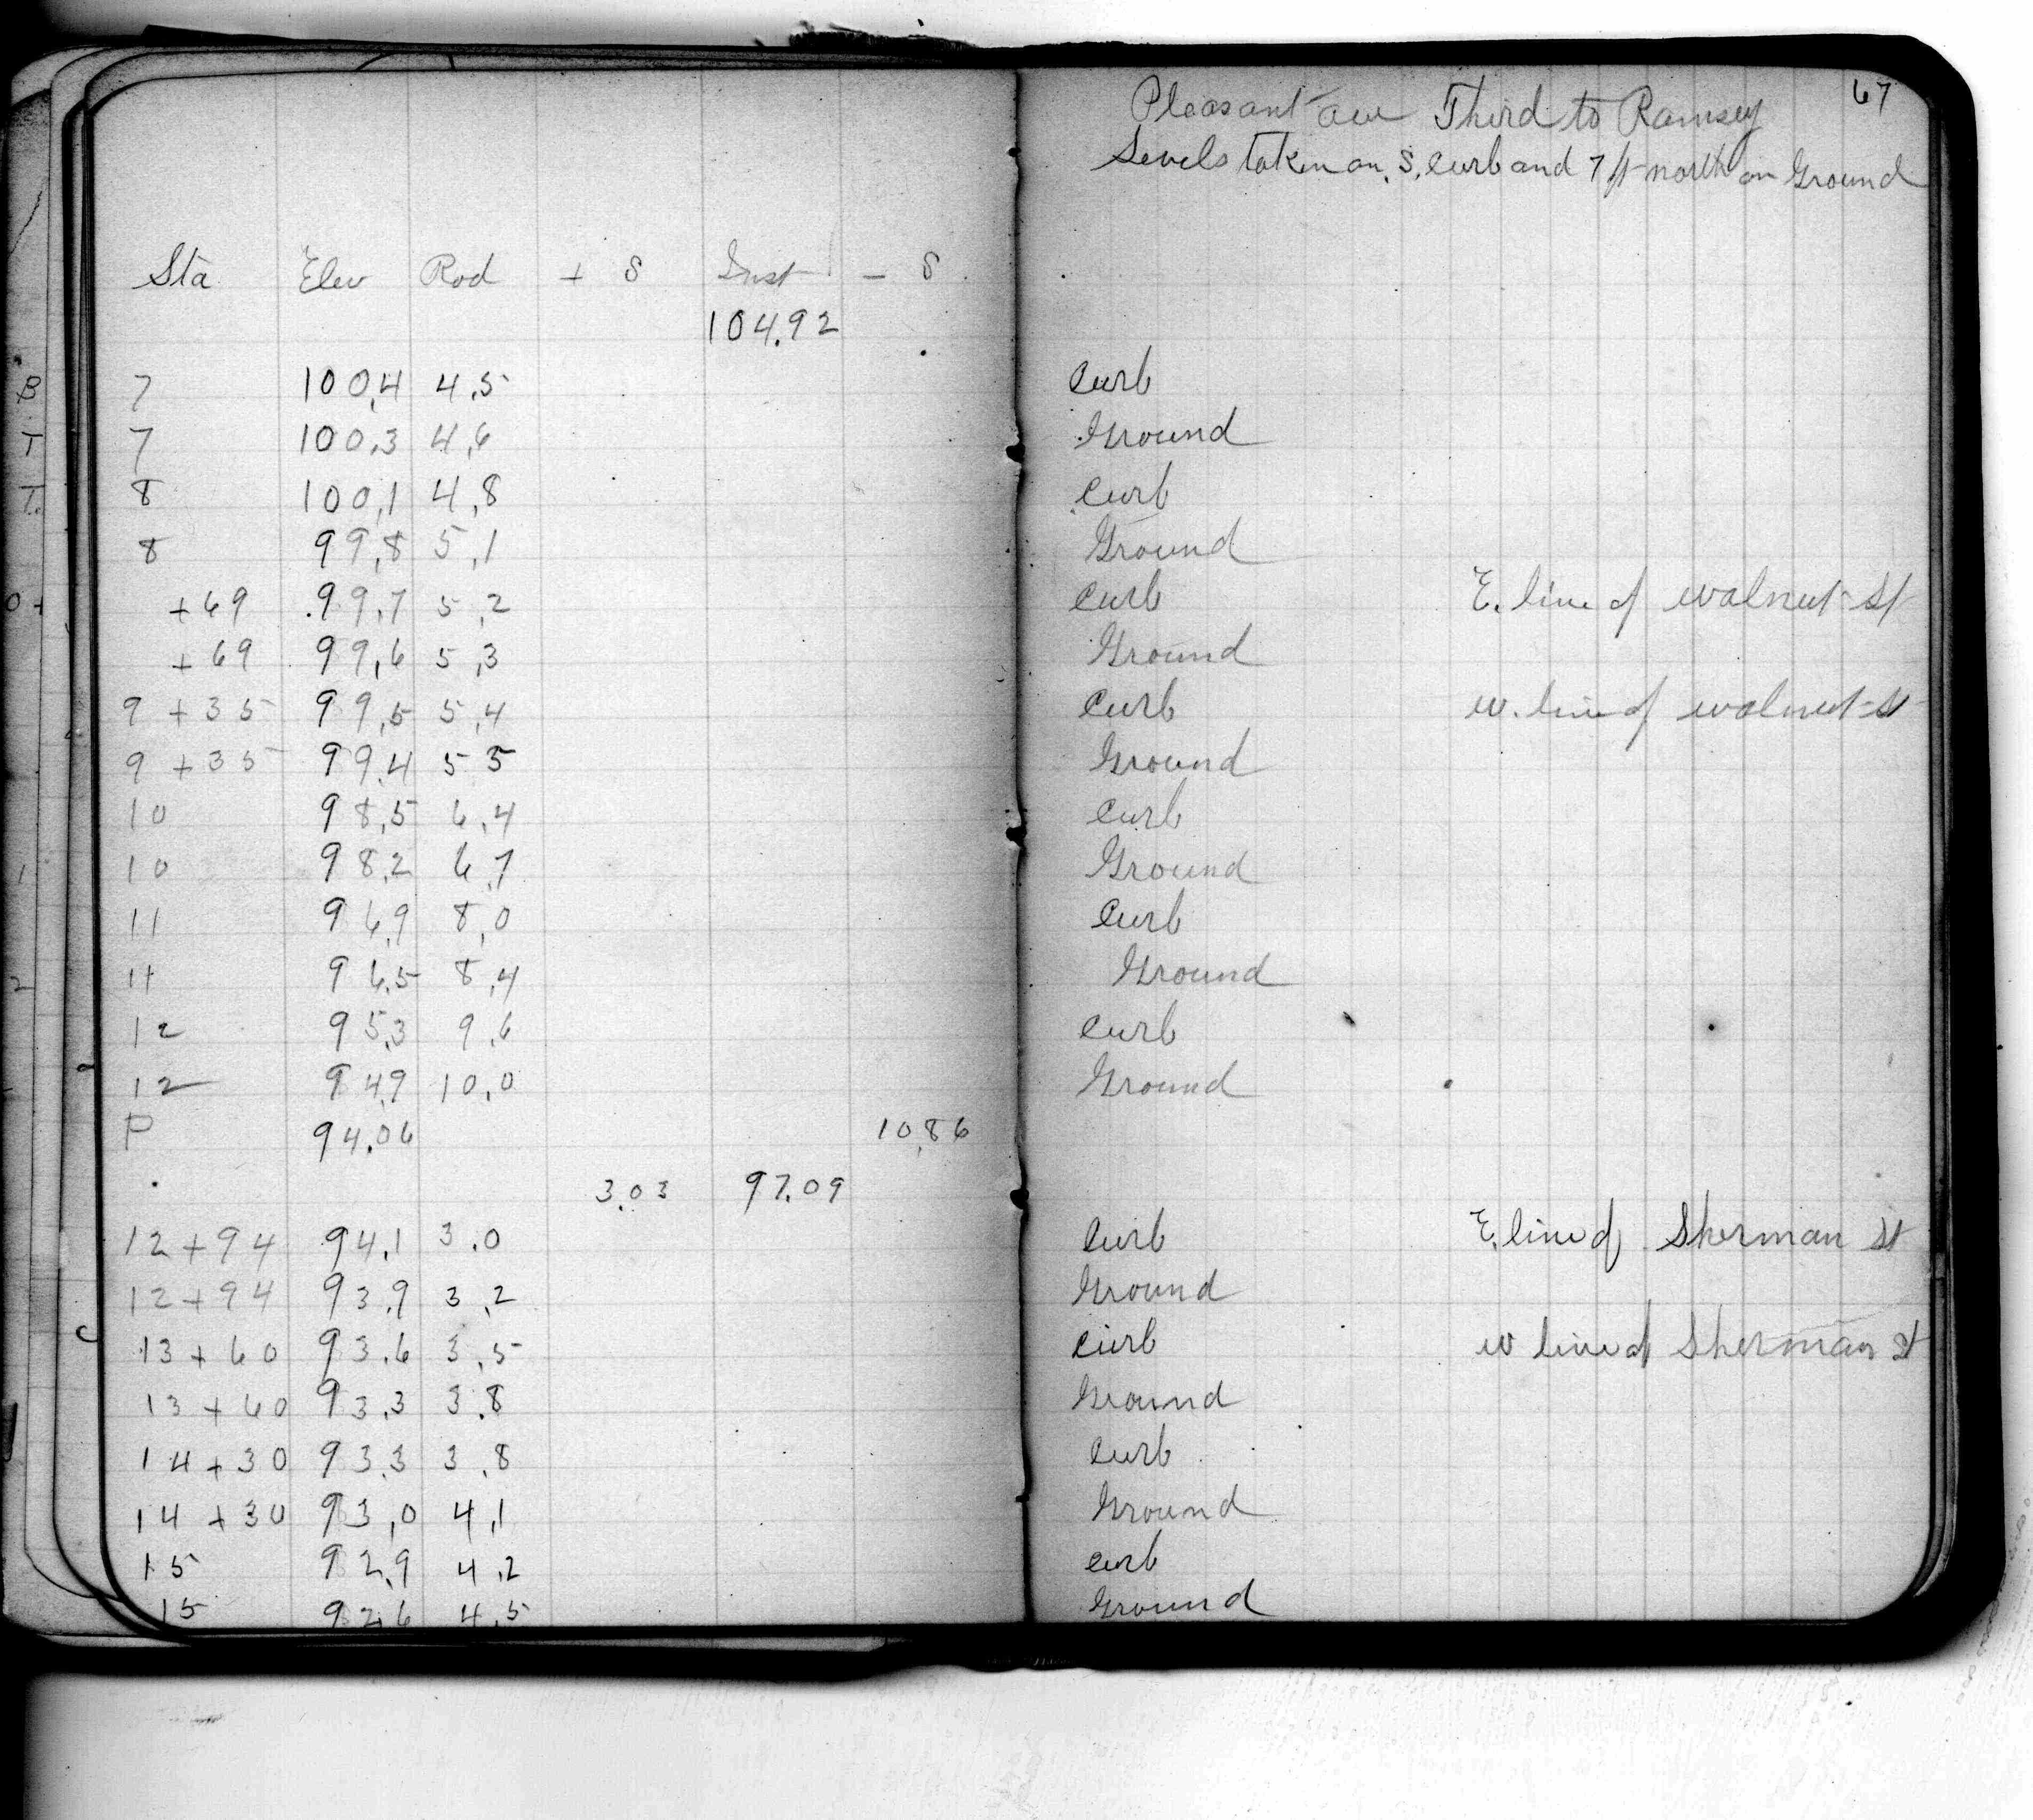 67
Pleasant ave Third to Ramsey
Levels taken on S. curb and 7 ft north on Ground
Sta Elev Rod + S Inst - S
104.92
7 100.4 4.5 Curb
7 100.3 4.6 Ground
8 100.1 4.8 Curb
8 99.8 5.1 Ground
+69 99.7 5.2 Curb E. line of walnut St
+69 99.6 5.3 Ground
9 +35 99.5 5.4 Curb w. line of walnut St
9 +35 99.4 5 5 Ground
10 98.5 6.4 Curb
10 98.2 6.7 Ground
11 96.9 8.0 Curb
11 96.5 8.4 Ground
12 95.3 9.6 Curb
12 94.9 10.0 Ground
P 94.06 10.86
3.03 97.09
12+94 94.1 3.0 Curb E. line of Sherman St
12+94 93.9 3.2 Ground
13+60 93.6 3.5 Curb w line of Sherman St
13+60 93.3 3.8 Ground
14+30 93.3 3.8 Curb
14+30 93.0 4.1 Ground
15 92.9 4.2 Curb
15 92.6 4.5 Ground